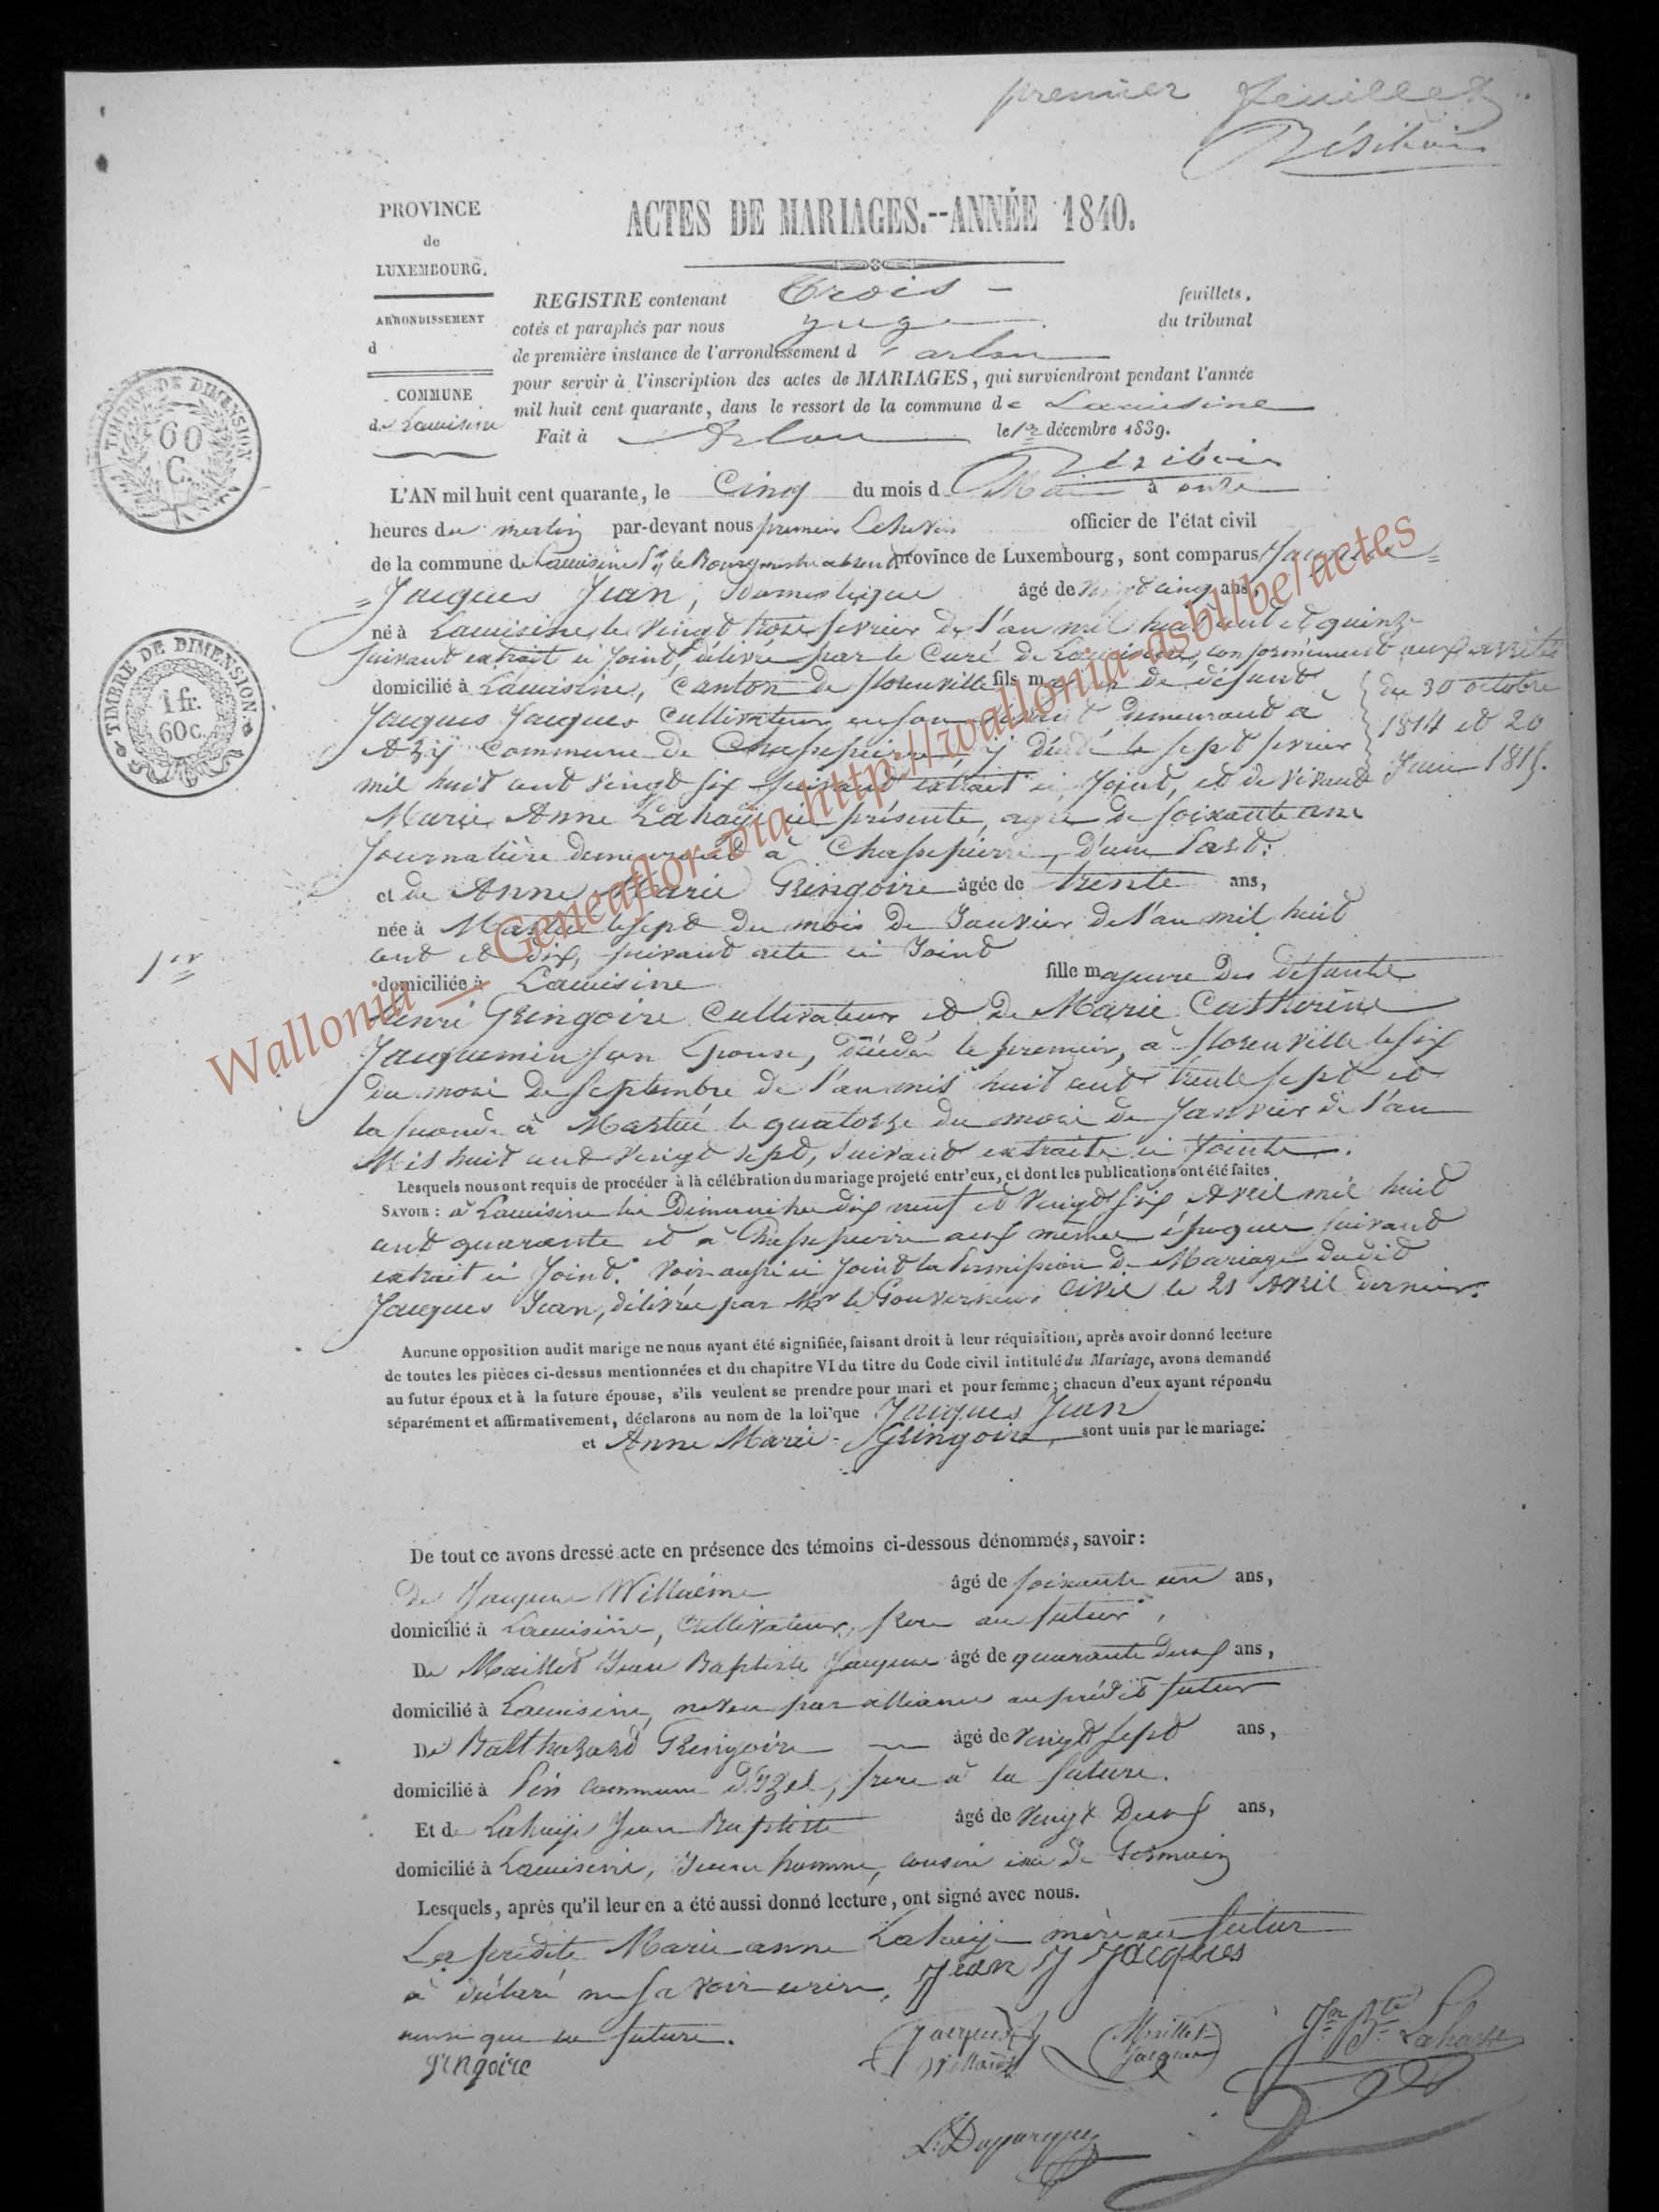 premier feuillet
PROVINCE
de
LUXEMBOURG.
ARRONDISSEMENT
d
COMMUNE
de Lacuisine
ACTES DE MARIAGES.--ANNÉE 1840.
REGISTRE contenant trois feuillets,
cotés et paraphés par nous juge du tribunal
de première instance de l'arrondissement d'arlon
pour servir à l'inscription des actes de MARIAGES, qui surviendront pendant l'année
mil huit cent quarante, dans le ressort de la commune de Lacuisine
Fait à Arlon le 1er décembre 1839.
TIMBRE DE DIMENSION
60
C.
TIMBRE DE DIMENSION
1 fr.
60c.
L'AN mil huit cent quarante, le Cinq du mois d Mai à onze
heures du matin par-devant nous premier Echevin officier de l'état civil
de la commune de Lacuisine le Bourgmestre absent province de Luxembourg, sont comparus
Jacques Jean, Domestique âgé de vingt cinq ans,
né à Lacuisine le vingt trois fevrier de l'an mil huit cent et quinze
suivant extrait ci joint, délivré par le Curé de Lacuisine, conformément aux arrêtés
du 30 octobre
1814 et 20
Juin 1815.
domicilié à Lacuisine, Canton de florenville fils majeur de défunt
Jacques Jacques Cultivateur en son vivant demeurant à
Azÿ Commune de Chassepierre, y décédé le sept fevrier
mil huit cent vingt six suivant extrait ci joint, et de vivante
Marie Anne Lahaÿe ci présente, agée de soixante ans
Journalière demeurant à Chassepierre, d'une part:
et de Anne Marie Gringoire âgée de trente ans,
née à Martué le sept du mois de Janvier de l'an mil huit
cent et dix, suivant acte ci Joint
1er
domiciliée à Lacuisine fille majeure des défunts
Henri Gringoire Cultivateur et de Marie Catherine
Jacquemin son Epouse, décédé le premier, à florenville le six
du mois de septembre de l'an mil huit cent trente sept et
la seconde à Martué le quatorze du mois de Janvier de l'an
Mil huit cent vingt sept, suivant extraits ci Joints.
Lesquels nous ont requis de procéder à la célébration du mariage projeté entr'eux, et dont les publications ont été faites
SAVOIR: à Lacuisine les Dimanches dix neuf et vingt six Avril mil huit
cent quarante et à Chassepierre aux mêmes époques suivant
extrait ci Joint. Voir aussi ci Joint la Permission de Mariage dudit
Jacques Jean, délivrée par Mr le Gouverneur Civil le 21 Avril dernier.
Aucune opposition audit marige ne nous ayant été signifiée, faisant droit à leur réquisition, après avoir donné lecture
de toutes les pièces ci-dessus mentionnées et du chapitre VI du titre du Code civil intitulé du Mariage, avons demandé
au futur époux et à la future épouse, s'ils veulent se prendre pour mari et pour femme; chacun d'eux ayant répondu
séparément et affirmativement, déclarons au nom de la loi que Jacques Jean
et Anne Marie Gringoire sont unis par le mariage.
De tout ce avons dressé acte en présence des témoins ci-dessous dénommés, savoir:
De Jacques Willaême âgé de soixante un ans,
domicilié à Lacuisine, Cultivateur, frere au futur,
De Maillet Jean Baptiste Jacques âgé de quarante deux ans,
domicilié à Lacuisine, neveu par alliance au prédit futur
De Balthazard Gringoire âgé de vingt sept ans,
domicilié à Pin commune d'Izel, frere à la future.
Et de Lahaÿe Jean Baptiste âgé de vingt Deux ans,
domicilié à Lacuisine, Jeune homme, cousin issu de Germain
Lesquels, après qu'il leur en a été aussi donné lecture, ont signé avec nous.
La predite Marie anne Lahaÿe mère au futur
à déclaré ne savoir ecrire, Jean J Jacques
ainsi que la future.
gringoire
Jacques Willaême
Maillet Jacques
Jn Bte Lahaye
Wallonia – Geneaflor-via http://wallonia-asbl/be/actes